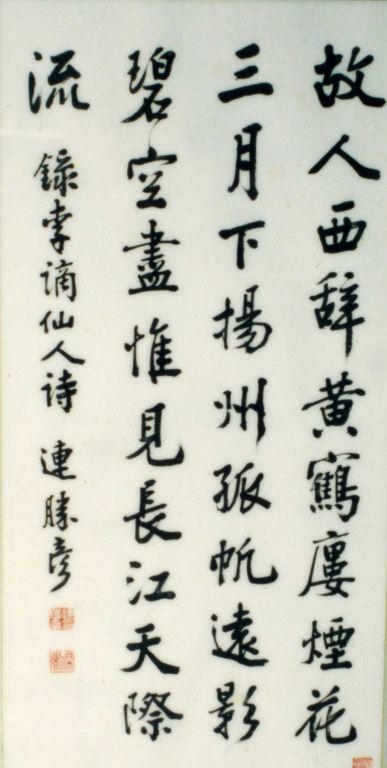 故人西辭黃鶴廔煙花
三月下揚州孤帆遠影
碧空盡惟見長江天際
流
錄李謫仙人詩 連勝彥